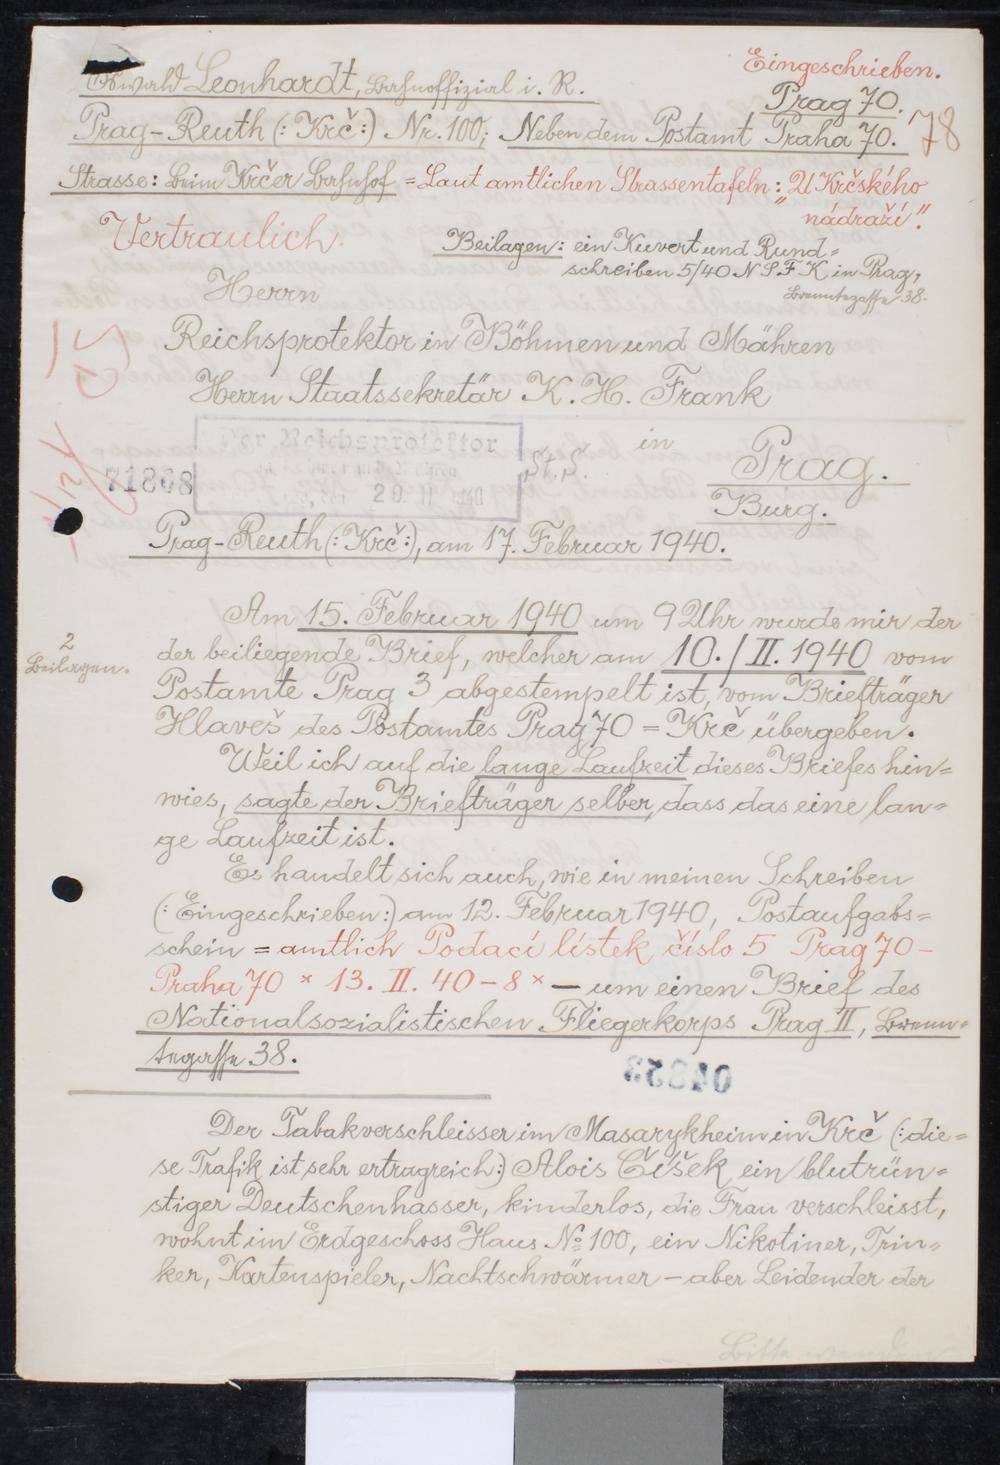 Eingeschrieben.
Oswald Leonhardt, Bahnoffizial i. R.
Prag 70.
78
Prag-Reuth (: Krč :) Nr. 100; Neben dem Postamt Praha 70.
Strasse: beim Krčer Bahnhof = Laut amtlichen Strassentafeln: „U Krčského
nádraží".
Vertraulich.
Beilagen: ein Kuvert und Rund=
schreiben 5/40 N S F K in Prag,
Brenntegasse 38.
Herrn
Reichsprotektor in Böhmen und Mähren
Herrn Staatssekretär K. H. Frank
in
Der Reichsprotektor
in Böhmen und Mähren
20. II. 40
St. S.
71868
Prag.
Burg.
Prag-Reuth (: Krč :), am 17. Februar 1940.
Am 15. Februar 1940 um 9 Uhr wurde mir der
2
Beilagen.
der beiliegende Brief, welcher am 10./II. 1940 vom
Postamte Prag 3 abgestempelt ist, vom Briefträger
Hlaveš des Postamtes Prag 70 = Krč übergeben.
Weil ich auf die lange Laufzeit dieses Briefes hin=
wies, sagte der Briefträger selber, dass das eine lan=
ge Laufzeit ist.
Es handelt sich auch, wie in meinen Schreiben
(: Eingeschrieben :) am 12. Februar 1940, Postaufgabs=
schein = amtlich Podací lístek číslo 5 Prag 70 –
Praha 70 × 13. II. 40 – 8 × – um einen Brief des
Nationalsozialistischen Fliegerkorps Prag II, Brenn=
tegasse 38.
04833
Der Tabakverschleisser im Masarykheim in Krč (: die=
se Trafik ist sehr ertragreich :) Alois Číšek ein blutrün=
stiger Deutschenhasser, kinderlos, die Frau verschleisst,
wohnt im Erdgeschoss Haus No 100, ein Nikotiner, Trin=
ker, Kartenspieler, Nachtschwärmer – aber Leidender der
Bitte wenden